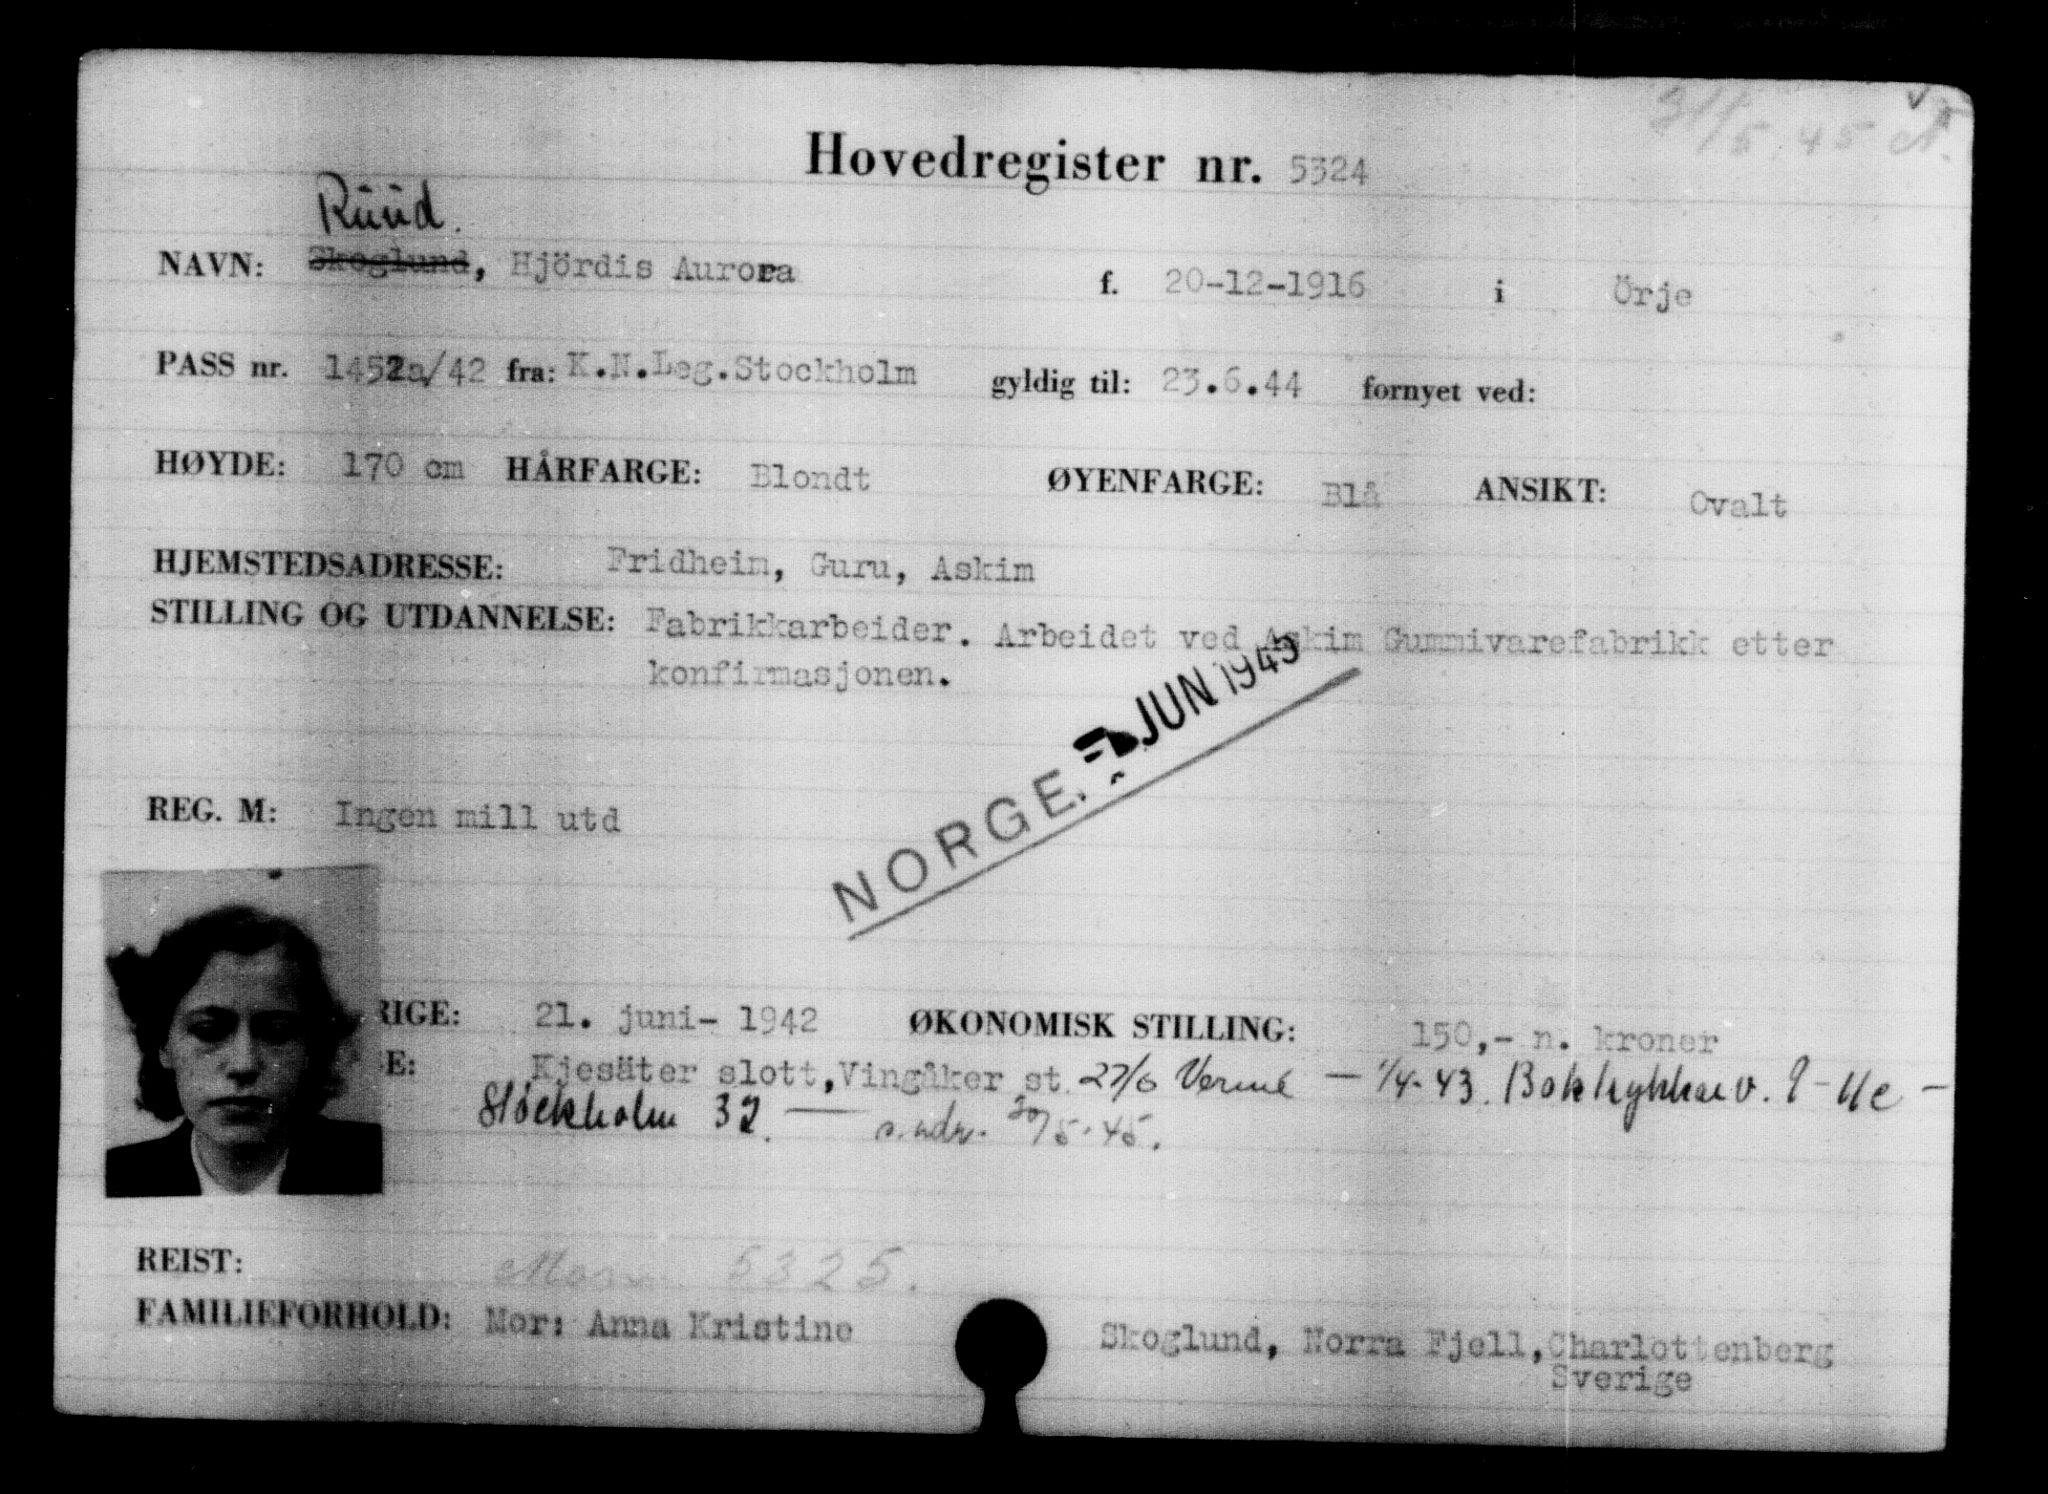 31/5 45
Hovedregister nr. 5324
Ruud.
NAVN: Skoglund, Hjördis Aurora f. 20-12-1916 i Örje
PASS nr. 1452a/42 fra: K.N.Leg.Stockholm gyldig til: 23.6.44 fornyet ved:
HØYDE: 170 cm HÅRFARGE: Blondt ØYENFARGE: Blå ANSIKT: Ovalt
HJEMSTEDSADRESSE: Fridheim, Guru, Askim
STILLING OG UTDANNELSE: Fabrikkarbeider. Arbeidet ved Askim Gummivarefabrikk etter
konfirmasjonen.
JUN 1945
NORGE.
REG. M: Ingen mill utd
RIGE: 21. juni- 1942 ØKONOMISK STILLING: 150,- n. kroner
SE: Kjesäter slott, Vingåker st. 27/6 — 1/4-43. Bokhykkar v. 9-11c —
Stockholm 32. — 30/5-45.
REIST: 5325.
FAMILIEFORHOLD: Mor: Anna Kristine Skoglund, Norra Fjell, Charlottenberg
Sverige